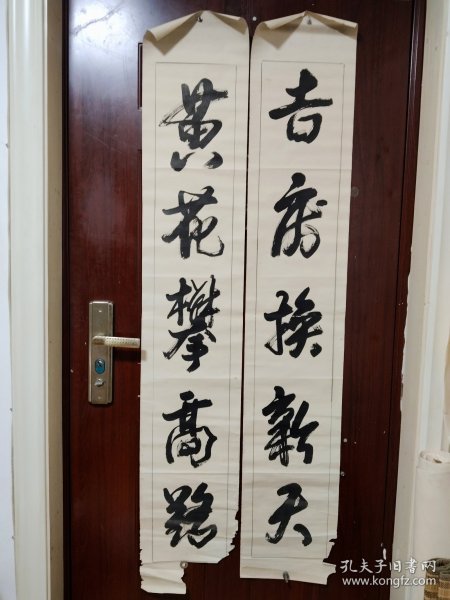 吉房换新天
黄花攀高路
孔夫子旧书网
www.kongfz.com